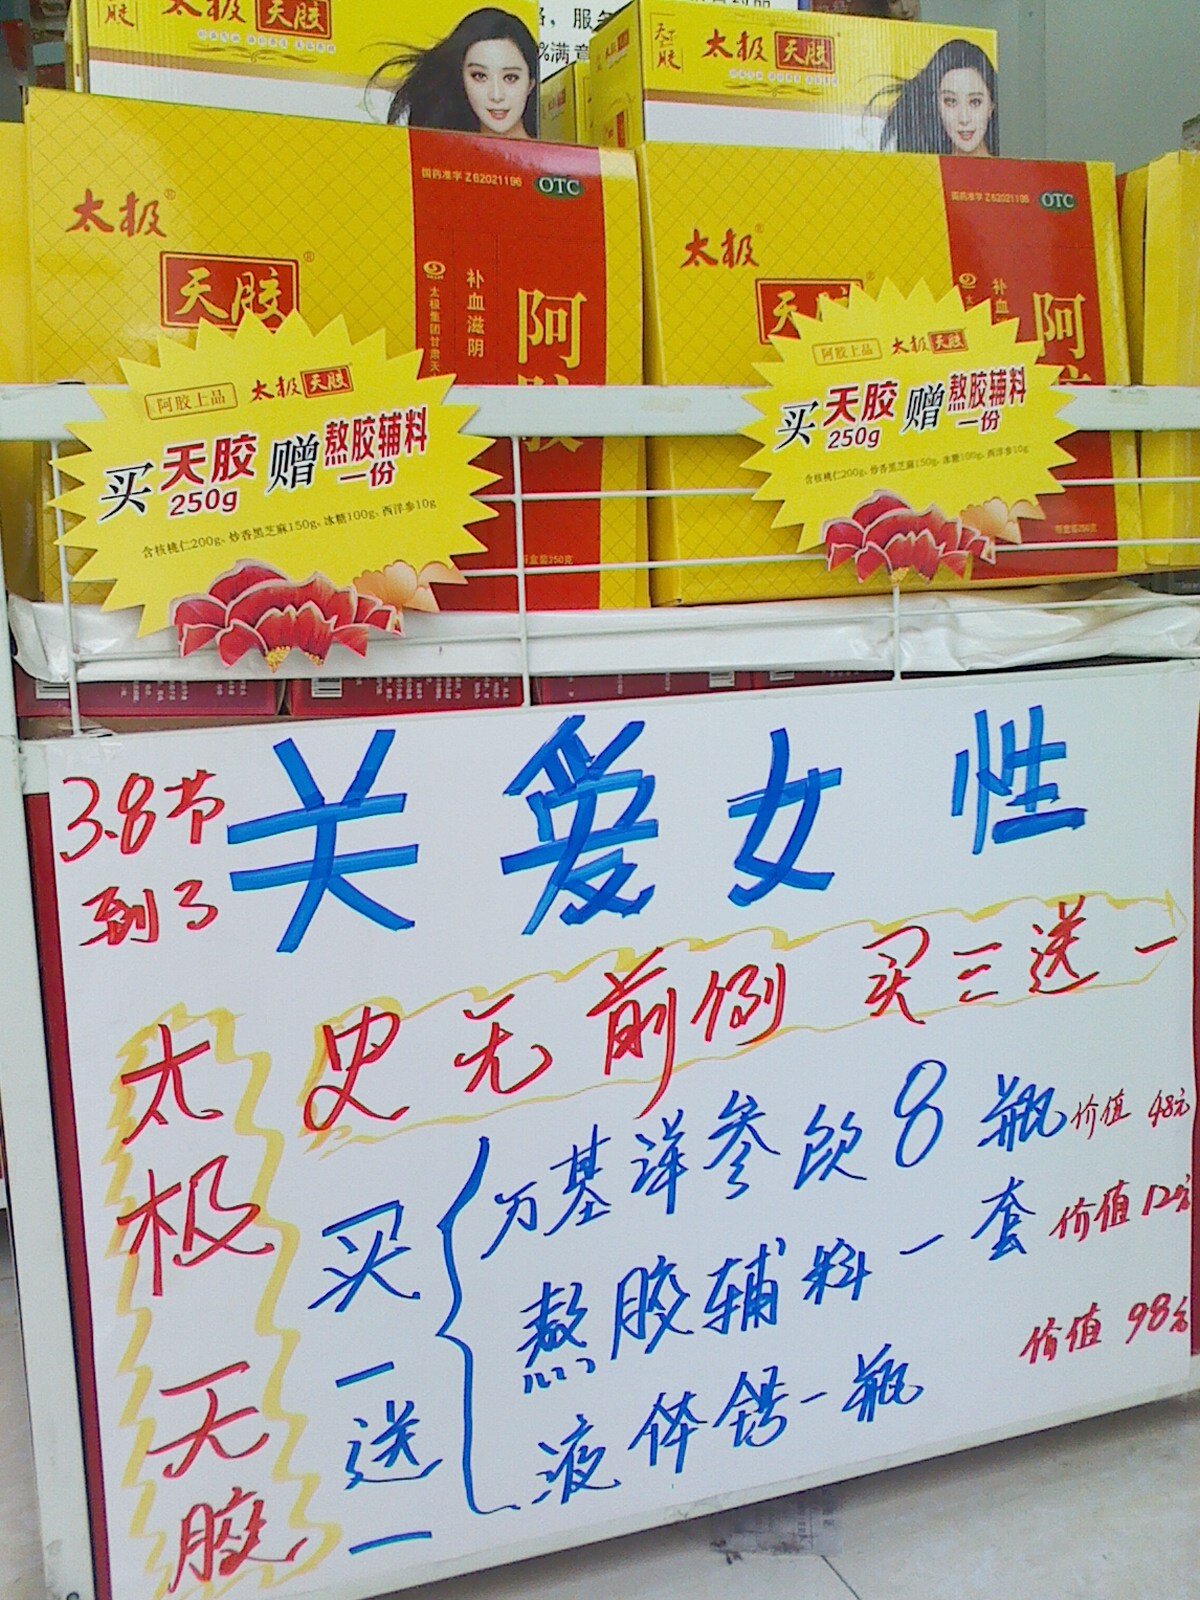 太极 天胶
天胶
格，服务
%满意
太极 天胶
太极
天胶
国药准字Z62021196 OTC
补血滋阴
太极集团甘肃天
阿胶
太极
国药准字Z62021196 OTC
补血
阿
阿胶上品 太极天胶
买天胶250g赠熬胶辅料一份
含核桃仁200g、炒香黑芝麻150g、冰糖100g、西洋参10g
阿胶上品 太极天胶
买天胶250g赠熬胶辅料一份
含核桃仁200g、炒香黑芝麻150g、冰糖100g、西洋参10g
3.8节到了
关爱女性
史无前例 买三送一
太极天胶
买一送一
万基洋参饮8瓶 价值48元
熬胶辅料一套 价值12元
液体钙一瓶 价值98元